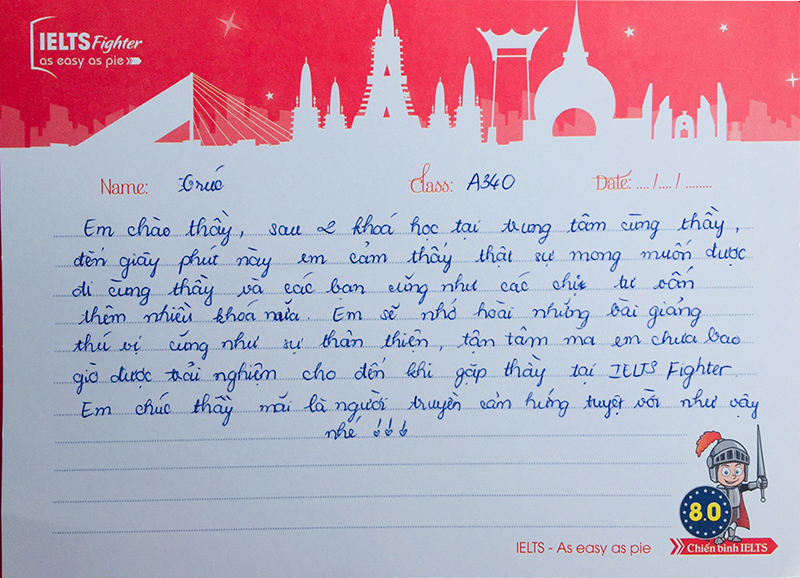 IELTS Fighter
as easy as pie
Name: Trúc Class: A340 Date: .... /.... / ........
Em chào thầy, sau 2 khoá học tại trung tâm cùng thầy,
đến giây phút này em cảm thấy thật sự mong muốn được
đi cùng thầy và các bạn cũng như các chị tư vấn
thêm nhiều khoá nữa. Em sẽ nhớ hoài những bài giảng
thú vị cũng như sự thân thiện, tận tâm mà em chưa bao
giờ được trải nghiệm cho đến khi gặp thầy tại IELTS Fighter.
Em chúc thầy mãi là người truyền cảm hứng tuyệt vời như vậy
nhé !!!
8.0
IELTS - As easy as pie
Chiến binh IELTS